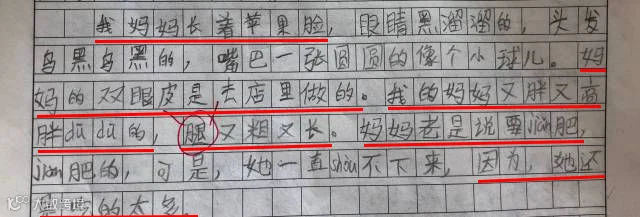 我妈妈长着苹果脸,眼睛黑溜溜的,头发
乌黑乌黑的,嘴巴一张圆圆的像个小球儿。妈
妈的双眼皮是去店里做的。我的妈妈又胖又高
胖dūdū的,腿又粗又长。妈妈老是说要jiǎn肥,
jiǎn肥的,可是,她一直shòu不下来,因为,她还
是吃的太多